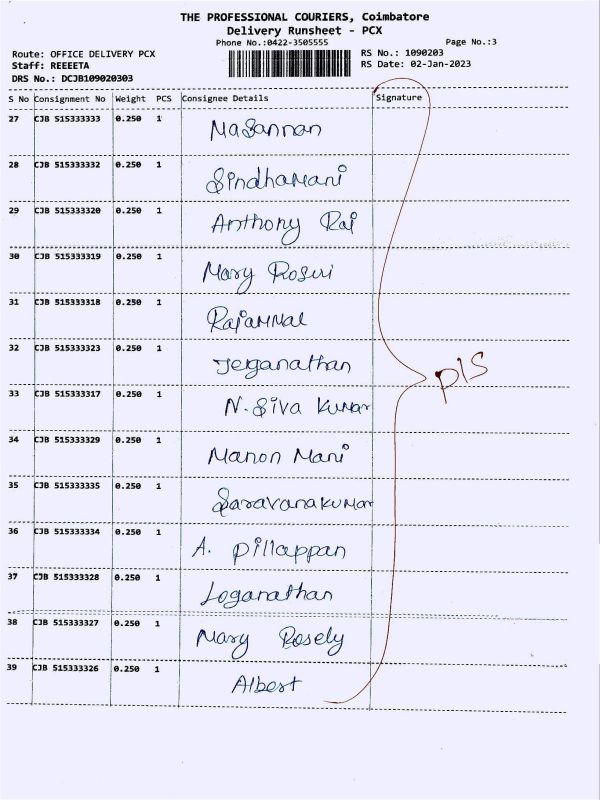 THE PROFESSIONAL COURIERS, Coimbatore
Delivery Runsheet - PCX
Phone No.:0422-3505555 Page No.:3
Route: OFFICE DELIVERY PCX RS No.: 1090203
Staff: REEEETA RS Date: 02-Jan-2023
DRS No.: DCJB109020303
S No Consignment No Weight PCS Consignee Details Signature
27 CJB 515333333 0.250 1 Masannan
28 CJB 515333332 0.250 1 Sindhamani
29 CJB 515333320 0.250 1 Anthony Raj
30 CJB 515333319 0.250 1 Mary Rosuri
31 CJB 515333318 0.250 1 Rajammal
32 CJB 515333323 0.250 1 Jeganathan
33 CJB 515333317 0.250 1 N. Siva Kumar
34 CJB 515333329 0.250 1 Manon Mani
35 CJB 515333335 0.250 1 Saravanakumar
36 CJB 515333334 0.250 1 A. Pillappan
37 CJB 515333328 0.250 1 Loganathan
38 CJB 515333327 0.250 1 Mary Rosely
39 CJB 515333326 0.250 1 Albert